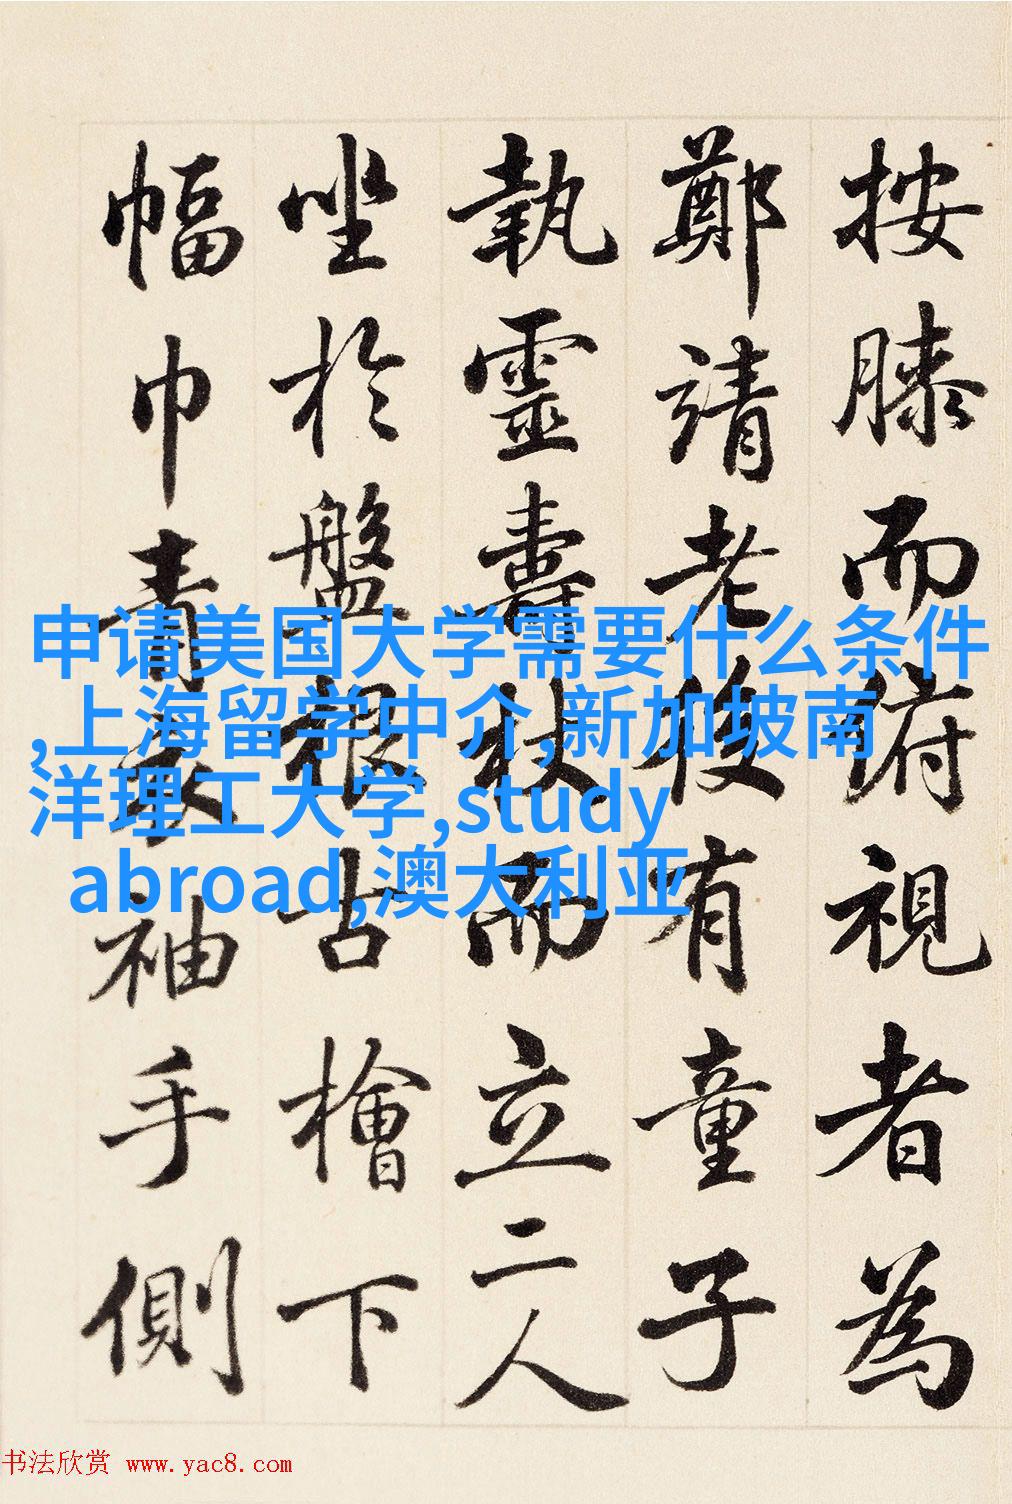 按膝而俯視者為
鄭靖老後有童子
執靈壽杖而立二人
坐於盤根古檜下
幅巾青衣袖手側
申请美国大学需要什么条件
,上海留学中介,新加坡南
洋理工大学,study
abroad,澳大利亚
书法欣赏 www.yac8.com